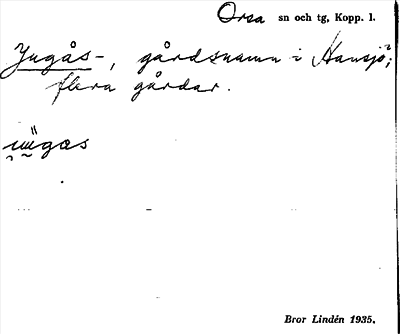 Orsa sn och tg, Kopp. l.
Ingås-, gårdsnamn i Hansjö;
flera gårdar.
Bror Lindén 1935.